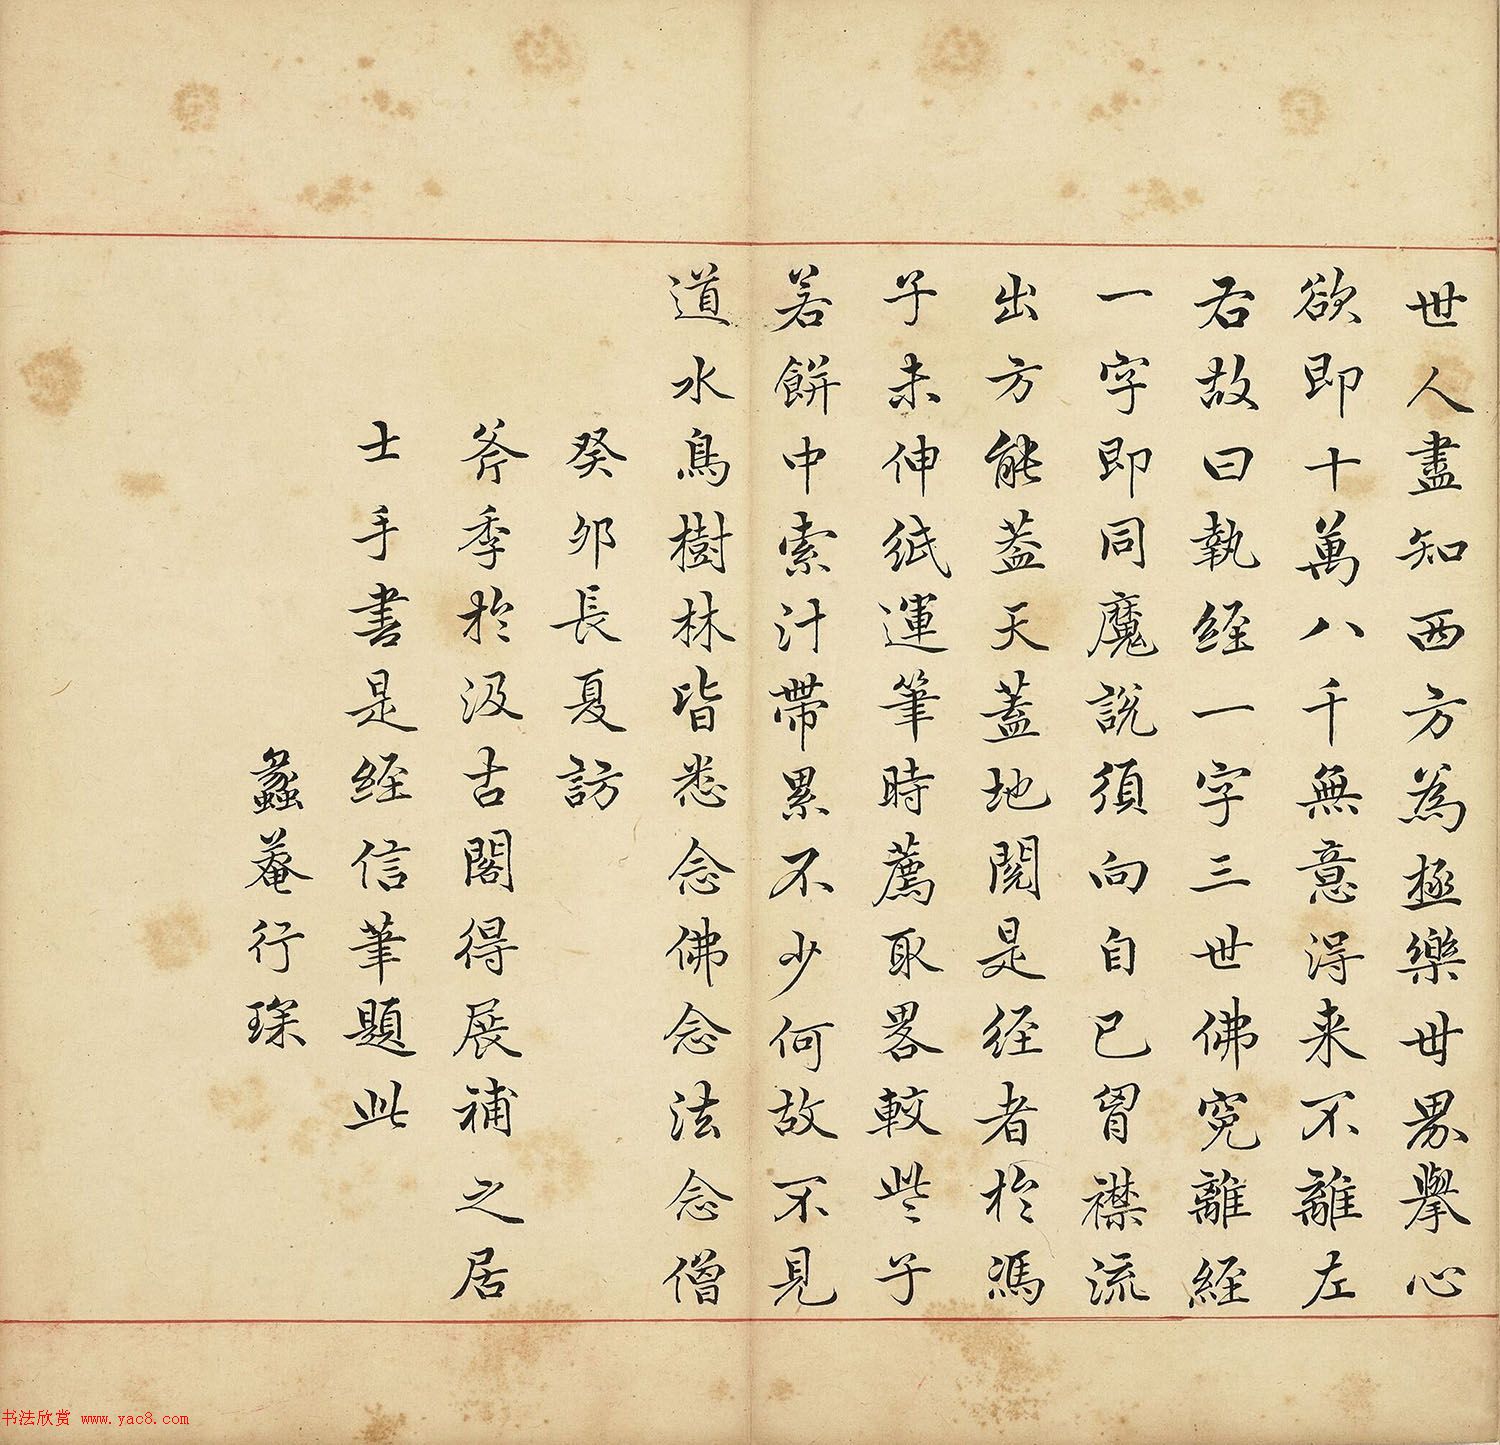 世人盡知西方為極樂世界舉心
欲即十萬八千無意得来不離左
右故曰執經一字三世佛寃離經
一字即同魔說須向自己胷襟流
出方能蓋天蓋地閱是經者於馮
子未伸紙運筆時薦取畧較些子
若餅中索汁帶累不少何故不見
道水鳥樹林皆悉念佛念法念僧
癸卯長夏訪
斧季於汲古閣得展補之居
士手書是經信筆題此
蠡菴行琛
书法欣赏 www.yac8.com